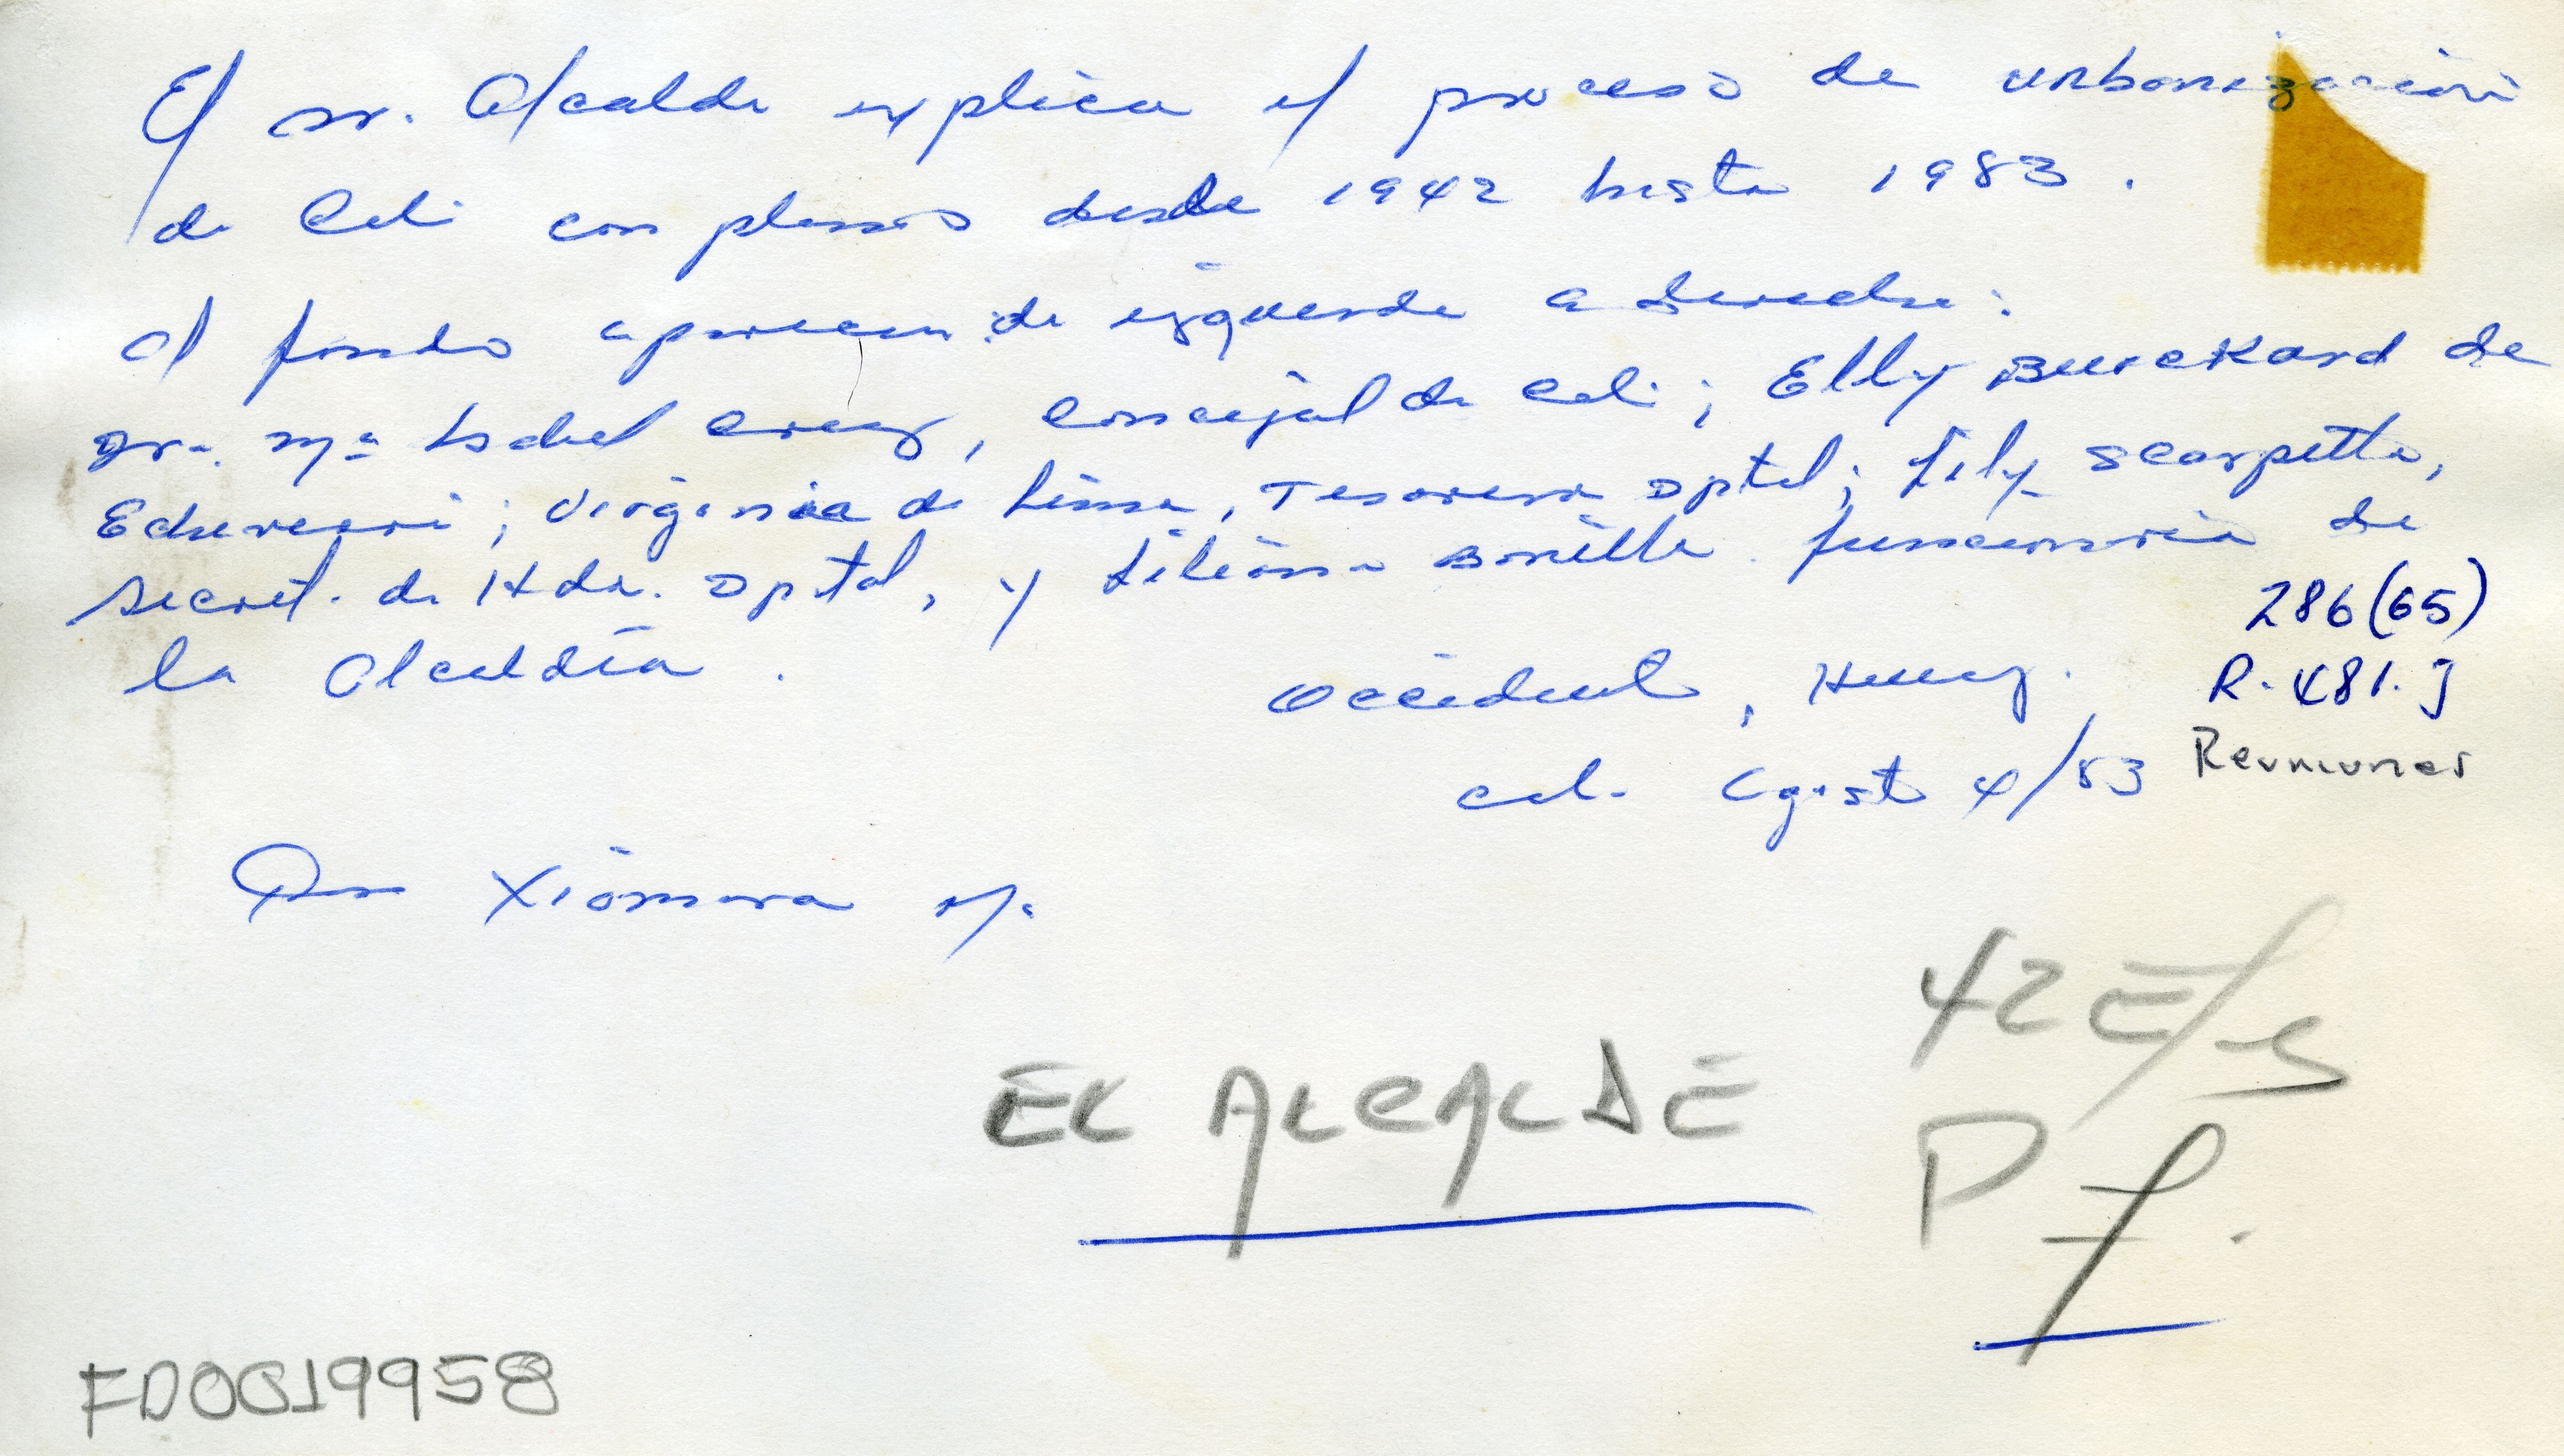 El sr. Alcalde explica el proceso de urbonización
de Cali con planos desde 1942 hasta 1983.
Al fondo aparecen de izquierda a derecha:
Dra. Mª Isabel Cruz, Concejal de Cali; Elly Burckard de
Echeverri; Virginia de Lima, Tesorera Dptal; Lily Scarpetta,
Secret. de Hda. Dptal, y Liliana Bonilla funcionaria de
la Alcaldía.
286(65)
Occidente, Henry.
R. 481. J
Reuniones
Cali Agosto 4/83
Xiomara M.
42
EL ALCALDE
P
FD0019958